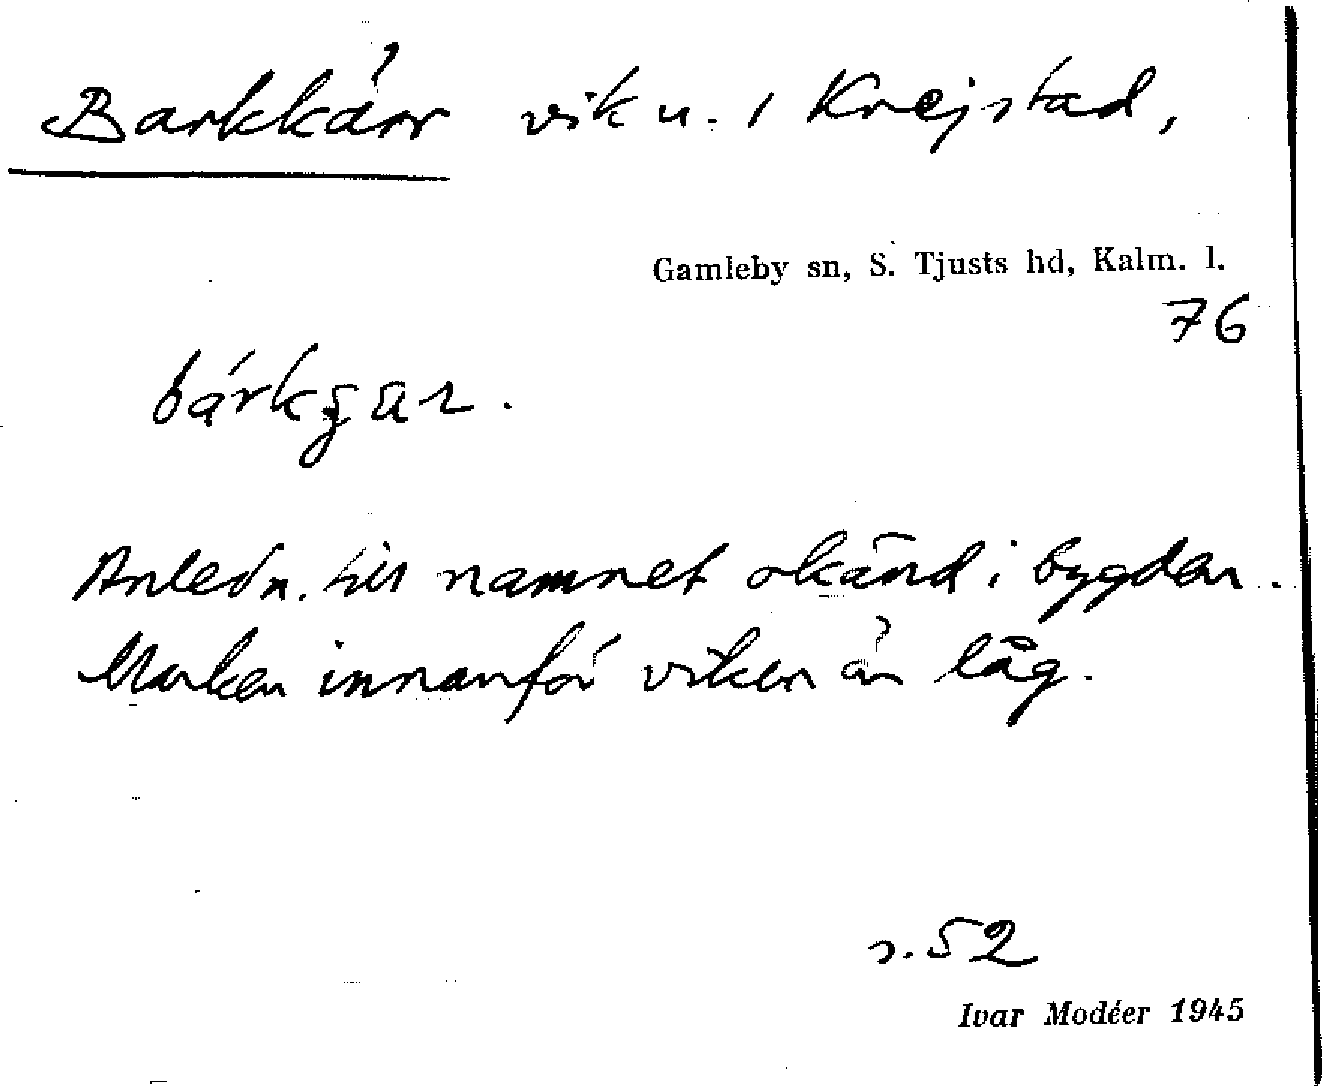 Barkkärr vik u. / Krejstad,
Gamleby sn, S. Tjusts hd, Kalm. l.
76
Anledn. till namnet okänd i bygden.
Marken innanför viken är låg.
s. 52
Ivar Modéer 1945